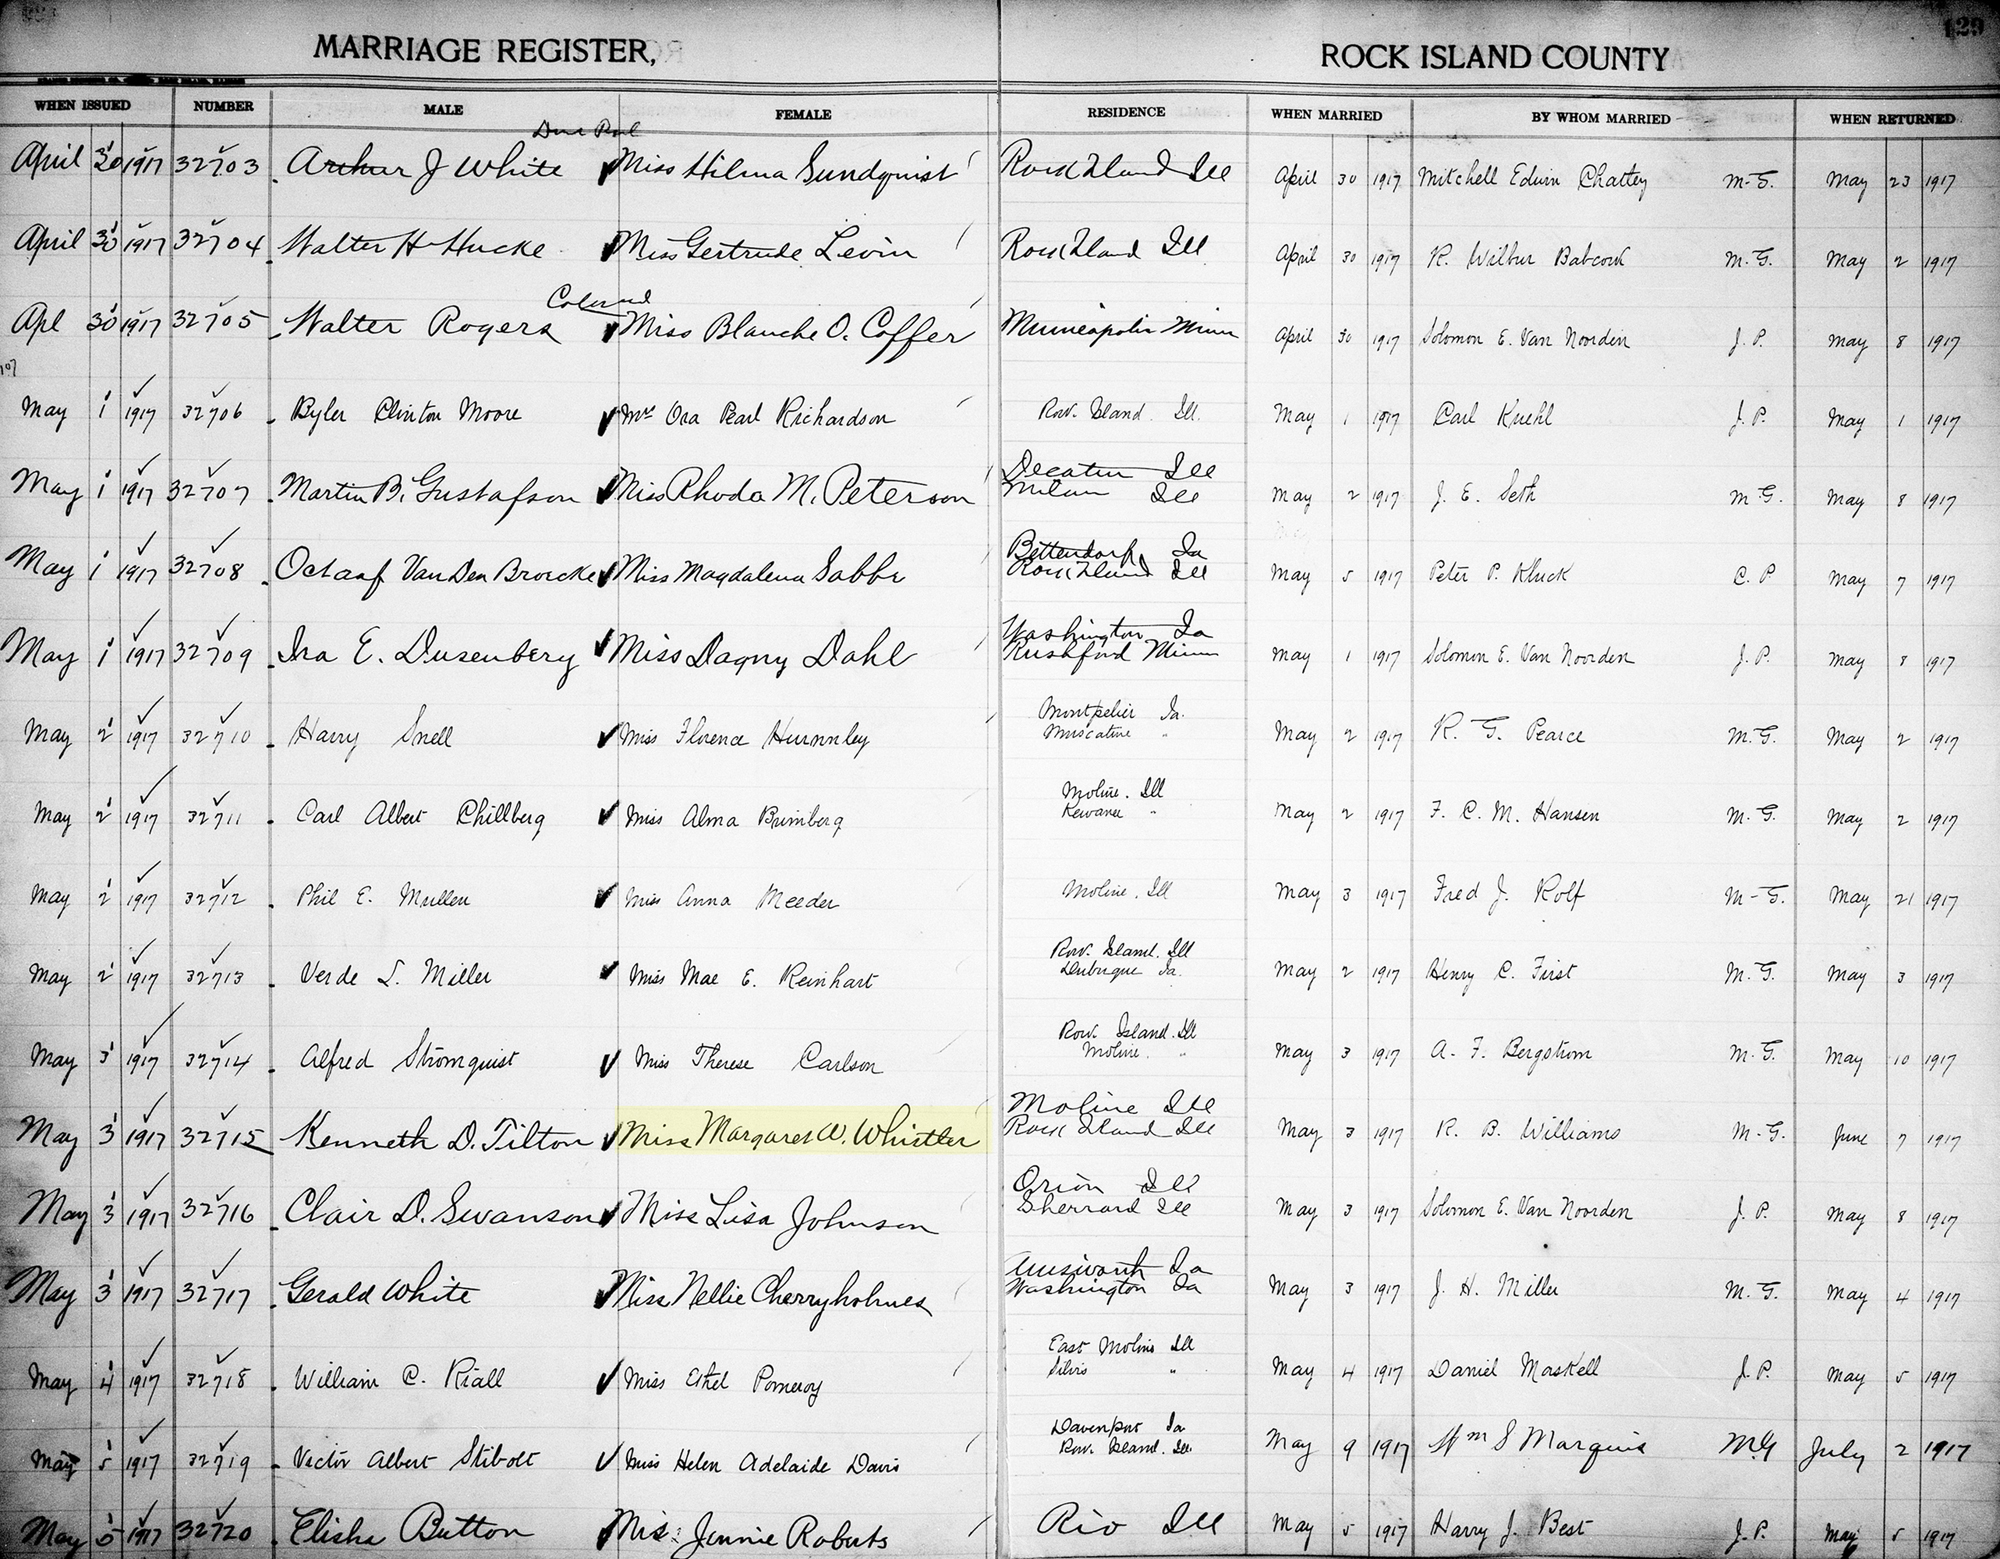 129
MARRIAGE REGISTER, ROCK ISLAND COUNTY
WHEN ISSUED NUMBER MALE FEMALE RESIDENCE WHEN MARRIED BY WHOM MARRIED WHEN RETURNED
April 30 1917 32703 Arthur J White Miss Hilma Sundquist Rock Island Ill April 30 1917 Mitchell Edwin Chattey M.G. May 23 1917
April 30 1917 32704 Walter H Hucke Miss Gertrude Levin Rock Island Ill April 30 1917 R. Wilbur Babcock M.G. May 2 1917
Colored
Apl 30 1917 32705 Walter Rogers Miss Blanche O. Coffer Minneapolis Minn April 30 1917 Solomon E. Van Noorden J.P. May 8 1917
May 1 1917 32706 Byler Clinton Moore Mrs Ora Pearl Richardson Rock Island Ill. May 1 1917 Carl Kuehl J.P. May 1 1917
Decatur Ill
May 1 1917 32707 Martin B. Gustafson Miss Rhoda M. Peterson Milan Ill May 2 1917 J. E. Seth M.G. May 8 1917
Bettendorf Ia
May 1 1917 32708 Octaaf Van Den Broecke Miss Magdalena Sabbe Rock Island Ill May 5 1917 Peter P. Kluck C.P May 7 1917
Washington Ia
May 1 1917 32709 Ira E. Dusenbery Miss Dagny Dahl Rushford Minn May 1 1917 Solomon E. Van Noorden J.P. May 8 1917
Montpelier Ia.
May 2 1917 32710 Harry Snell Miss Florence Hurnnley Muscatine " May 2 1917 R. G. Pearce M.G. May 2 1917
Moline. Ill
May 2 1917 32711 Carl Albert Chillberg Miss Alma Brimberg Kewanee " May 2 1917 F. C. M. Hansen M.G. May 2 1917
May 2 1917 32712 Phil E. Mullen Miss Anna Meeder Moline. Ill May 3 1917 Fred J. Rolf M-G. May 21 1917
Rock Island. Ill
May 2 1917 32713 Verde L. Miller Miss Mae E. Reinhart Dubuque Ia. May 2 1917 Henry C. First M.G. May 3 1917
Rock Island. Ill
May 3 1917 32714 Alfred Stromquist Miss Therese Carlson Moline. " May 3 1917 A. F. Bergstrom M.G. May 10 1917
Moline Ill
May 3 1917 32715 Kenneth D. Tilton Miss Margaret W. Whistler Rock Island Ill May 3 1917 R. B. Williams M-G. June 7 1917
Orion Ill
May 3 1917 32716 Clair D. Swanson Miss Lisa Johnson Sherrard Ill May 3 1917 Solomon E. Van Noorden J.P. May 8 1917
Ainsworth Ia
May 3 1917 32717 Gerald White Miss Nellie Cherryholmes Washington Ia May 3 1917 J. H. Miller M.G. May 4 1917
East Moline Ill
May 4 1917 32718 William C. Riall Miss Ethel Pomeroy Silvis " May 4 1917 Daniel Maskell J.P. May 5 1917
Davenport Ia
May 5 1917 32719 Victor Albert Stibolt Miss Helen Adelaide Davis Rock Island. Ill May 9 1917 Wm S Marquis MG July 2 1917
May 5 1917 32720 Elisha Button Mrs. Jennie Roberts Rio Ill May 5 1917 Harry J. Best J.P. May 5 1917